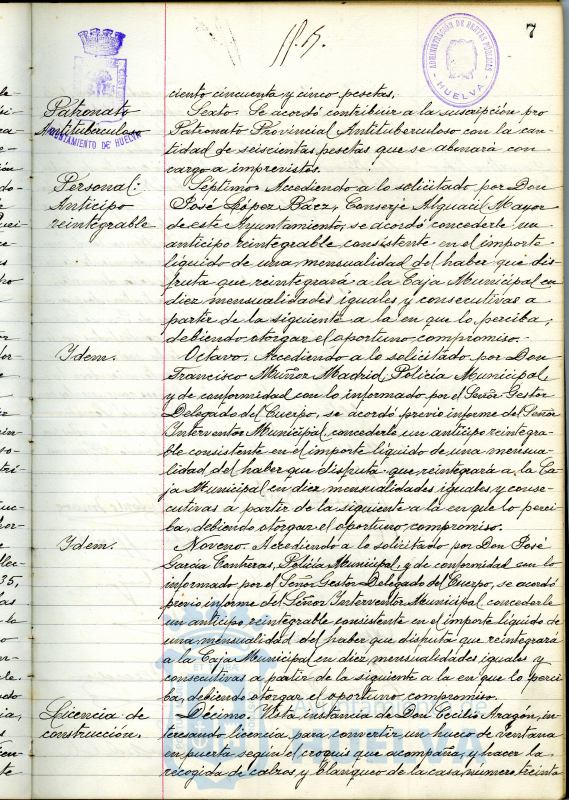 7
ADMINISTRACIÓN DE RENTAS PÚBLICAS
HUELVA
AYUNTAMIENTO DE HUELVA
ciento cincuenta y cinco pesetas.
Patronato
Antituberculoso
Sexto. Se acordó contribuir a la suscripción pro
Patronato Provincial Antituberculoso con la can-
tidad de seiscientas pesetas que se abonará con
cargo a imprevistos.
Personal:
Anticipo
reintegrable
Séptimo. Accediendo a lo solicitado por Don
José López Báez, Conserje Alguacil Mayor
de este Ayuntamiento, se acordó concederle un
anticipo reintegrable consistente en el importe
líquido de una mensualidad del haber que dis
fruta que reintegrará a la Caja Municipal en
diez mensualidades iguales y consecutivas a
partir de la siguiente a la en que lo perciba,
debiendo otorgar el oportuno compromiso.
Ydem.
Octavo. Accediendo a lo solicitado por Don
Francisco Muñoz Madrid, Policía Municipal,
y de conformidad con lo informado por el Señor Gestor
Delegado del Cuerpo, se acordó previo informe del Señor
Interventor Municipal, concederle un anticipo reintegra-
ble consistente en el importe líquido de una mensua-
lidad del haber que disfruta que reintegrará a la Ca-
ja Municipal en diez mensualidades iguales y conse-
cutivas a partir de la siguiente a la en que lo perci-
ba, debiendo otorgar el oportuno compromiso.
Ydem.
Noveno. Accediendo a lo solicitado por Don José
García Contreras, Policía Municipal, y de conformidad con lo
informado por el Señor Gestor Delegado del Cuerpo, se acordó
previo informe del Señor Interventor Municipal concederle
un anticipo reintegrable consistente en el importe líquido de
una mensualidad del haber que disfruta que reintegrará
a la Caja Municipal en diez mensualidades iguales y
consecutivas a partir de la siguiente a la en que lo perci-
ba, debiendo otorgar el oportuno compromiso.
Licencia de
construcción.
Décimo. Vista instancia de Don Cecilio Aragón, in-
teresando licencia para convertir un hueco de ventana
en puerta según el croquis que acompaña, y hacer la
recogida de calzos, y blanqueo de la casa número treinta
Ayuntamiento de